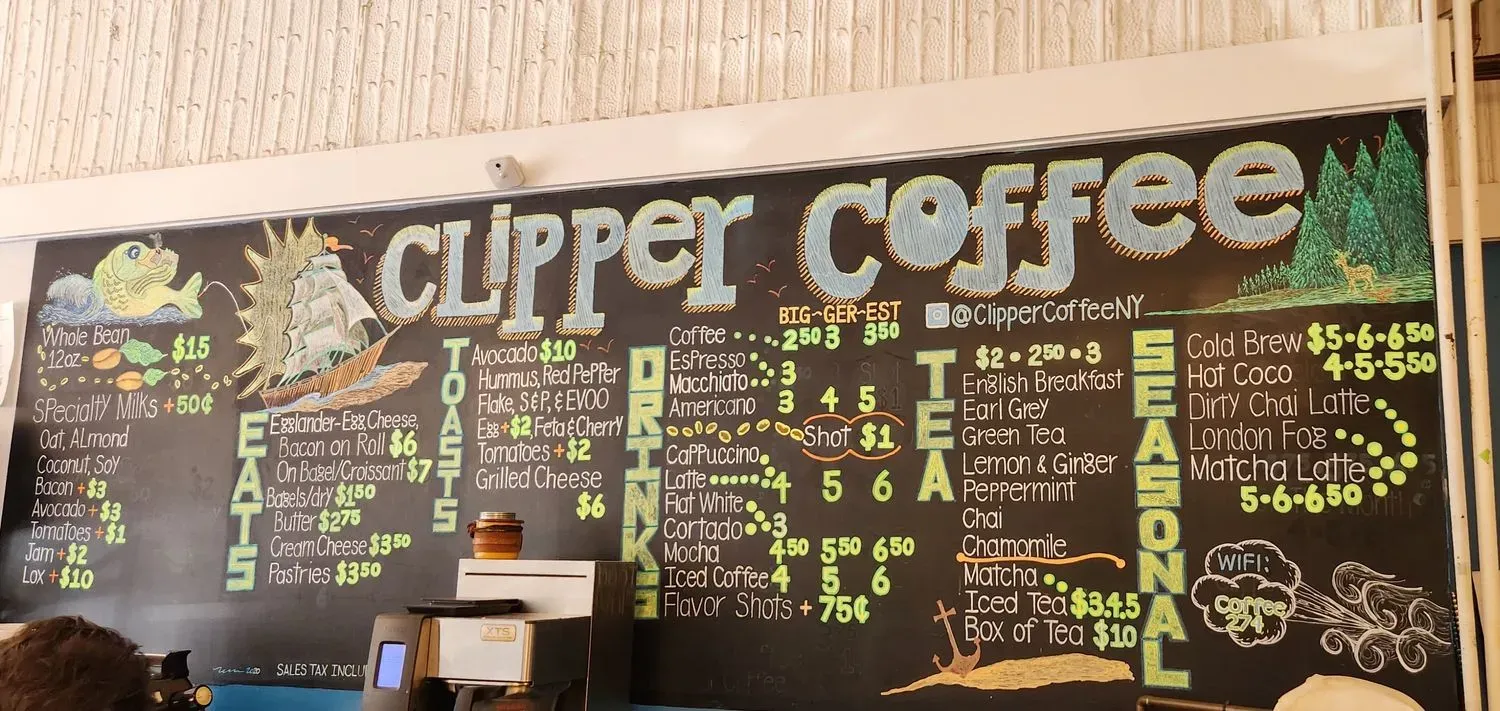 CLIPPER COFFEE
BIG~GER~EST
@CLIPPERCOFFEENY
Whole Bean
12oz $15
Specialty Milks +50¢
Oat, Almond
Coconut, Soy
Bacon +$3
Avocado +$3
Tomatoes +$1
Jam +$2
Lox +$10
EATS
Egglander-Egg, Cheese,
Bacon on Roll $6
On Bagel/Croissant $7
Bagels/dry $1 50
Butter $2 75
Cream Cheese $3 50
Pastries $3 50
SALES TAX INCLU
2020
TOASTS
Avocado $10
Hummus, Red Pepper
Flake, S&P, & EVOO
Egg +$2, Feta & Cherry
Tomatoes +$2
Grilled Cheese
$6
DRINKS
Coffee 2 50 3 3 50
Espresso
Macchiato 3
Americano 3 4 5
Shot $1
Cappuccino
Latte 4 5 6
Flat White
Cortado 3
Mocha 4 50 5 50 6 50
Iced Coffee 4 5 6
Flavor Shots + 75¢
TEA
$2 • 2 50 • 3
English Breakfast
Earl Grey
Green Tea
Lemon & Ginger
Peppermint
Chai
Chamomile
Matcha
Iced Tea $3.4.5
Box of Tea $10
SEASONAL
Cold Brew $5-6-6 50
Hot Coco 4-5-5 50
Dirty Chai Latte
London Fog
Matcha Latte
5-6-6 50
WIFI:
Coffee
274
XTS